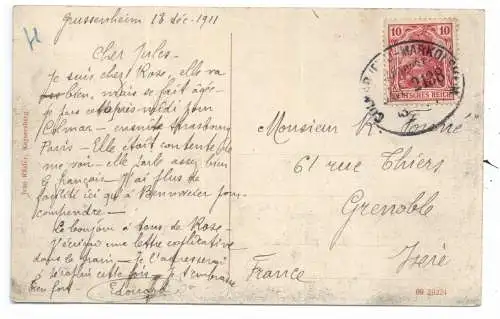 Grussenheim 18 déc. 1911
Cher Jules
Je suis chez Rose, elle va
bien, mais se fait âgée
je pars après midi pour
Colmar - ensuite Strasbourg
Paris - Elle était contente de
me voir - elle parle assez bien
le français - J'ai plus de
facilité ici qu'à Bennweier pour
comprendre -
Le bonjour à tous de Rose -
J'écrirai une lettre explicative
dans le train - Je l'adresserai
à cette fois - Je t'embrasse
bien fort Edouard
10 10
DEUTSCHES REICH
MARKOLSHEIM
Monsieur
61 rue Thiers
Grenoble
Isère
France
Jean Khäfer, Kaysersberg
09 29324